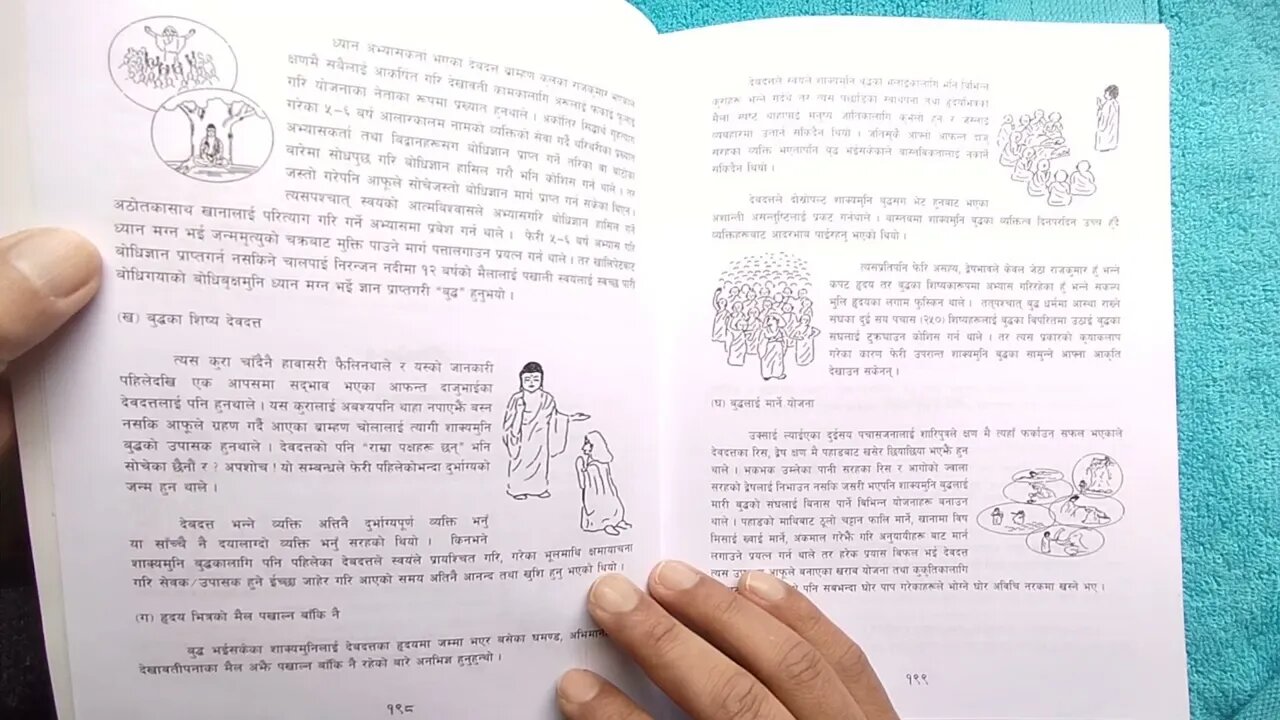 ध्यान अभ्यासकर्ता भएका देवदत्त ब्राम्हण कसका राजकुमार
क्षणमै सबैलाई आकर्षित गरि देखावती कामकालागि अरुलाई फकाइ फुलाइ
गरि योजनाका नेताका रूपमा प्रख्यात हुनथाले । अर्कोतिर सिद्धार्थ गृहत्याग
गरेका ५-६ बर्ष आलारकालम नामको व्यक्तिको सेवा गर्दै वरिपरीका प्रख्यात
अभ्यासकर्ता तथा बिद्वानहरूसग बोधिज्ञान प्राप्त गर्न तरिका वा बाटोका
बारेमा सोधपुछ गरि बोधिज्ञान हासिल गरौं भनि कोशिस गर्न थाले । तर
जस्तो गरेपनि आफूले सोचेजस्तो बोधिज्ञान मार्ग प्राप्त गर्न सकेका थिएन ।
त्यसपश्चात् स्वयंको आत्मबिश्वासले अभ्यासगरि बोधिज्ञान हासिल गर्ने
अठोतकासाथ खानालाई परित्याग गरि गर्ने अभ्यासमा प्रवेश गर्न थाले । फेरी ५-६ बर्ष अभ्यास गरि
ध्यान मग्न भई जन्ममृत्युको चक्रबाट मुक्ति पाउने मार्ग पत्तालगाउन प्रयत्न गर्न थाले । तर खालिपेटबाट
बोधिज्ञान प्राप्तगर्न नसकिने चालपाई निरन्जन नदीमा १२ बर्षको मैलालाई पखाली स्वयंलाई स्वच्छ पारी
बोधिगयाको बोधिबृक्षमुनि ध्यान मग्न भई ज्ञान प्राप्तगरी "बुद्ध" हुनुभयो ।
(ख) बुद्धका शिष्य देवदत्त
त्यस कुरा चाँदैनै हावासरी फैलिनथाले र यस्को जानकारी
पहिलेदखि एक आपसमा सद्भाव भएका आफन्त दाजुभाईका
देवदत्तलाई पनि हुनथाले । यस कुरालाई अबश्यपनि थाहा नपाएझै बस्न
नसकि आफूले ग्रहण गर्दै आएका ब्राम्हण चोलालाई त्यागी शाक्यमुनि
बुद्धको उपासक हुनथाले । देवदत्तको पनि "राम्रा पक्षहरू छन्" भनि
सोचेका छैनौ र ? अपशोच ! यो सम्बन्धले फेरी पहिलेकोभन्दा दुर्भाग्यको
जन्म हुन थाले ।
देवदत्त भन्ने व्यक्ति अतिनै दुर्भाग्यपूर्ण व्यक्ति भनुँ
या साँच्चै नै दयालाग्दो व्यक्ति भनुँ सरहको थियो । किनभने
शाक्यमुनि बुद्धकालागि पनि पहिलेका देवदत्तले स्वयंले प्रायश्चित गरि, गरेका भूलमाथि क्षमायाचना
गरि सेवक/उपासक हुने ईच्छा जाहेर गरि आएको समय अतिनै आनन्द तथा खुशि हुनु भएको थियो ।
(ग) हृदय भित्रको मैल पखाल्न बाँकि नै
बुद्ध भईसकेका शाक्यमुनिलाई देवदत्तका हृदयमा जम्मा भएर बसेका घमण्ड,
देखावतीपनाका मैल अझै पखाल्न बाँकि नै रहेको बारे अनभिज्ञ हुनुहुन्थ्यो ।
१९८
देवदत्तले स्वयंले शाक्यमुनि बुद्धका भलाईकालागि भनि बिभिन्न
कुराहरू भन्ने गर्दथे तर त्यस पछाडिका स्वार्थपना तथा हृदयभित्रका
मैला स्पष्ट थाहापाई मनुष्य जातिकालागि
व्यवहारमा उतार्न सकिदैन थियो । जतिसुकै आफ्ना आफन्त दाजु
सरहका व्यक्ति भएतापनि बुद्ध भईसकेकाले बास्तबिकतालाई नकार्न
सकिदैन थियो ।
देवदत्तले दोस्रोपल्ट शाक्यमुनि बुद्धसग भेट हुनबाट भएका
अशान्ती असन्तुष्टिलाई प्रकट गर्नथाले । बास्तबमा शाक्यमुनि बुद्धका व्यक्तित्व दिनपरदिन उच्च हुँदै
व्यक्तिहरूबाट आदरभाव पाईरहनु भएको थियो ।
त्यसप्रतिपनि फेरि असह्य, द्वेषभावले केवल जेठा राजकुमार हुँ भन्ने
कपट हृदय तर बुद्धका शिष्यकारूपमा अभ्यास गरिरहेका हुँ भन्ने संकल्प
भुलि हृदयका लगाम फुस्किन थाले । तत्पश्चात् बुद्ध धर्ममा आस्था राख्ने
संघका दुई सय पचास (२५०) शिष्यहरूलाई बुद्धका बिपरितमा उठाई बुद्धका
संघलाई टुक्र्याउन कोशिस गर्न थाले । तर त्यस प्रकारको कृयाकलाप
गरेका कारण फेरी उपरान्त शाक्यमुनि बुद्धका सामुन्ने आफ्ना आकृति
देखाउन सकेनन् ।
(घ) बुद्धलाई मार्ने योजना
उक्साई ल्याईएका दुईसय पचासजनालाई शारिपुत्रले क्षण मै त्यहाँ फर्काउन सफल भएकाले
देवदत्तका रिस, द्वेष क्षण मै पहाडबाट खसेर छियाछिया भएझै हुन
थाले । भकभक उम्लेका पानी सरहका रिस र आगोको ज्वाला
सरहको द्वेषलाई निभाउन नसकि जसरी भएपनि शाक्यमुनि बुद्धलाई
मारी बुद्धको संघलाई बिनास पार्ने बिभिन्न योजनाहरू बनाउन
थाले । पहाडको माथिबाट ठूलो चट्टान फालि मार्ने, खानामा विष
मिसाई ख्वाई मार्ने, अंकमाल गरेझै गरि अनुयायीहरू बाट मार्न
लगाउने प्रयत्न गर्न थाले तर हरेक प्रयास बिफल भई देवदत्त
त्यस आफूले बनाएका खराब योजना तथा कुकृतिकालागि
पनि सबभन्दा घोर पाप गरेकाहरूले भोग्ने घोर अविचि नरकमा खस्ने भए ।
१९९